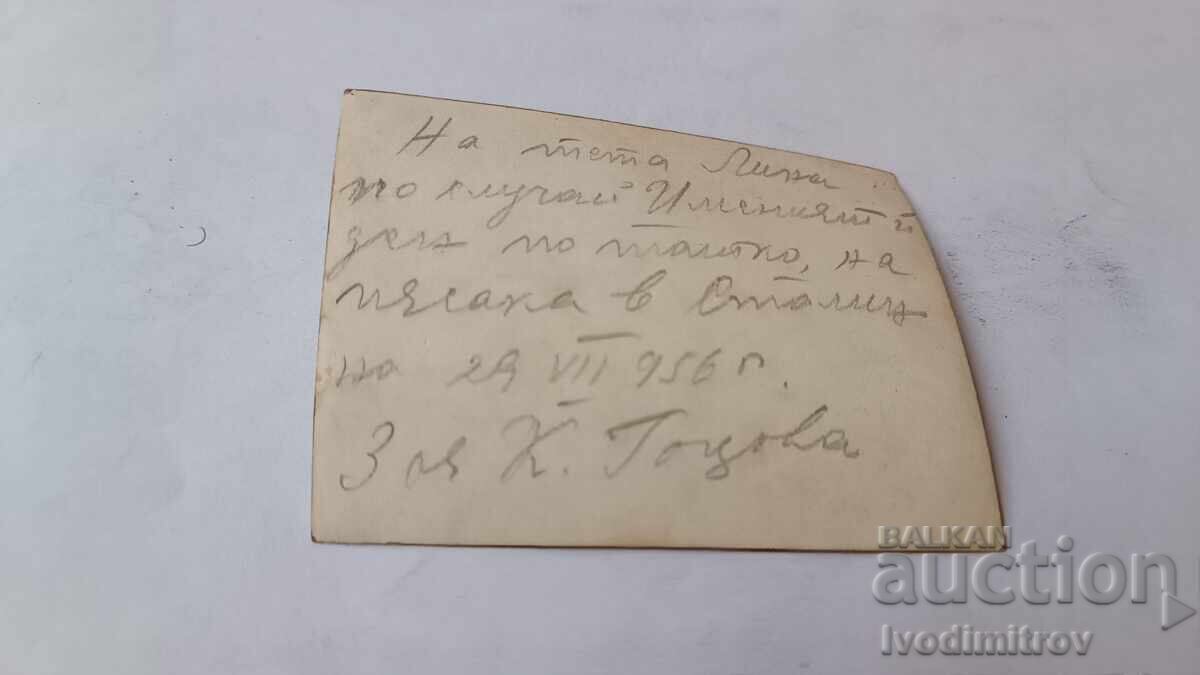 На тета Лина
по случай Именният ѝ
ден по татко, на
пясака в Сталин
на 29 VII 956 г.
Зоя К. Гоцова
BALKAN
auction
Ivodimitrov